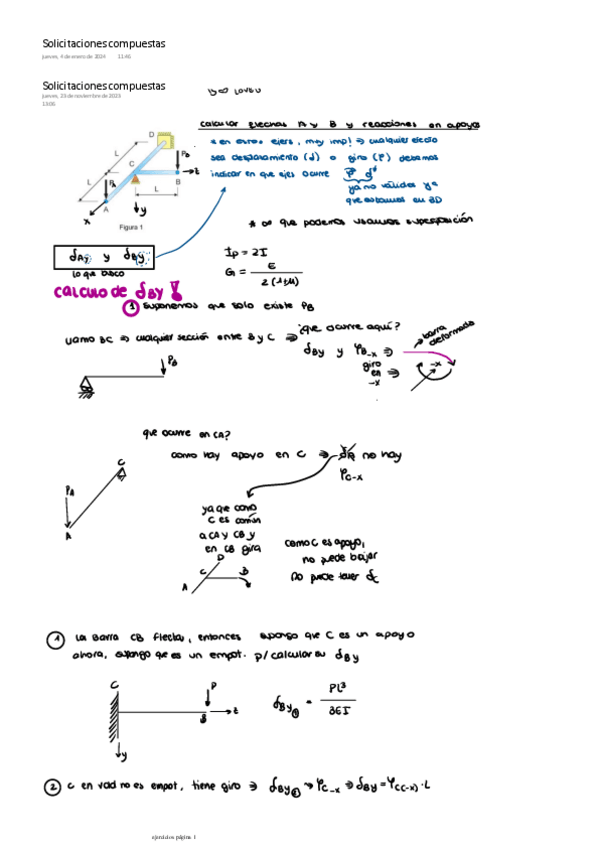 Solicitaciones compuestas
jueves, 4 de enero de 2024 11:46
Solicitaciones compuestas
jueves, 23 de noviembre de 2023
13:06
calcular flechas A y B y reacciones en apoyos
* en estos ejers, muy imp! ⇒ cualquier efecto
sea desplazamiento (d) o giro (φ) debemos
indicar en que ejes ocurre
ya no válidos ya
que estamos en 3D
D
L
C
L
PB
z
PA
B
L
A
x
y
Figura 1
* que podemos usamos superposición
δAy y δBy
lo que busco
Ip = 2I
G = E
2(1+μ)
CALCULO DE δBY
1 suponemos que solo existe PB
VAMO BC ⇒ cualquier sección entre B y C ⇒ ¿que ocurre aquí?
δBy y φB-x ⇒
giro
en ⇒
-x
barra
deformada
-x
PB
que ocurre en CA?
como hay apoyo en C ⇒ no hay
φC-x
C
PA
A
ya que como
C es común
a CA y CB y
en CB gira
D
C
B
A
como C es apoyo,
no puede bajar
No puede tener δC
1 La barra CB flecta, entonces supongo que C es un apoyo
ahora, supongo que es un empot. p/calcular su δBy
C
P
B
z
y
δBy1 = PL³
3EI
2 C en vdd no es empot, tiene giro ⇒ δBy2 → φC-x ⇒ δBy = φC(-x) · L
ejercicios página 1